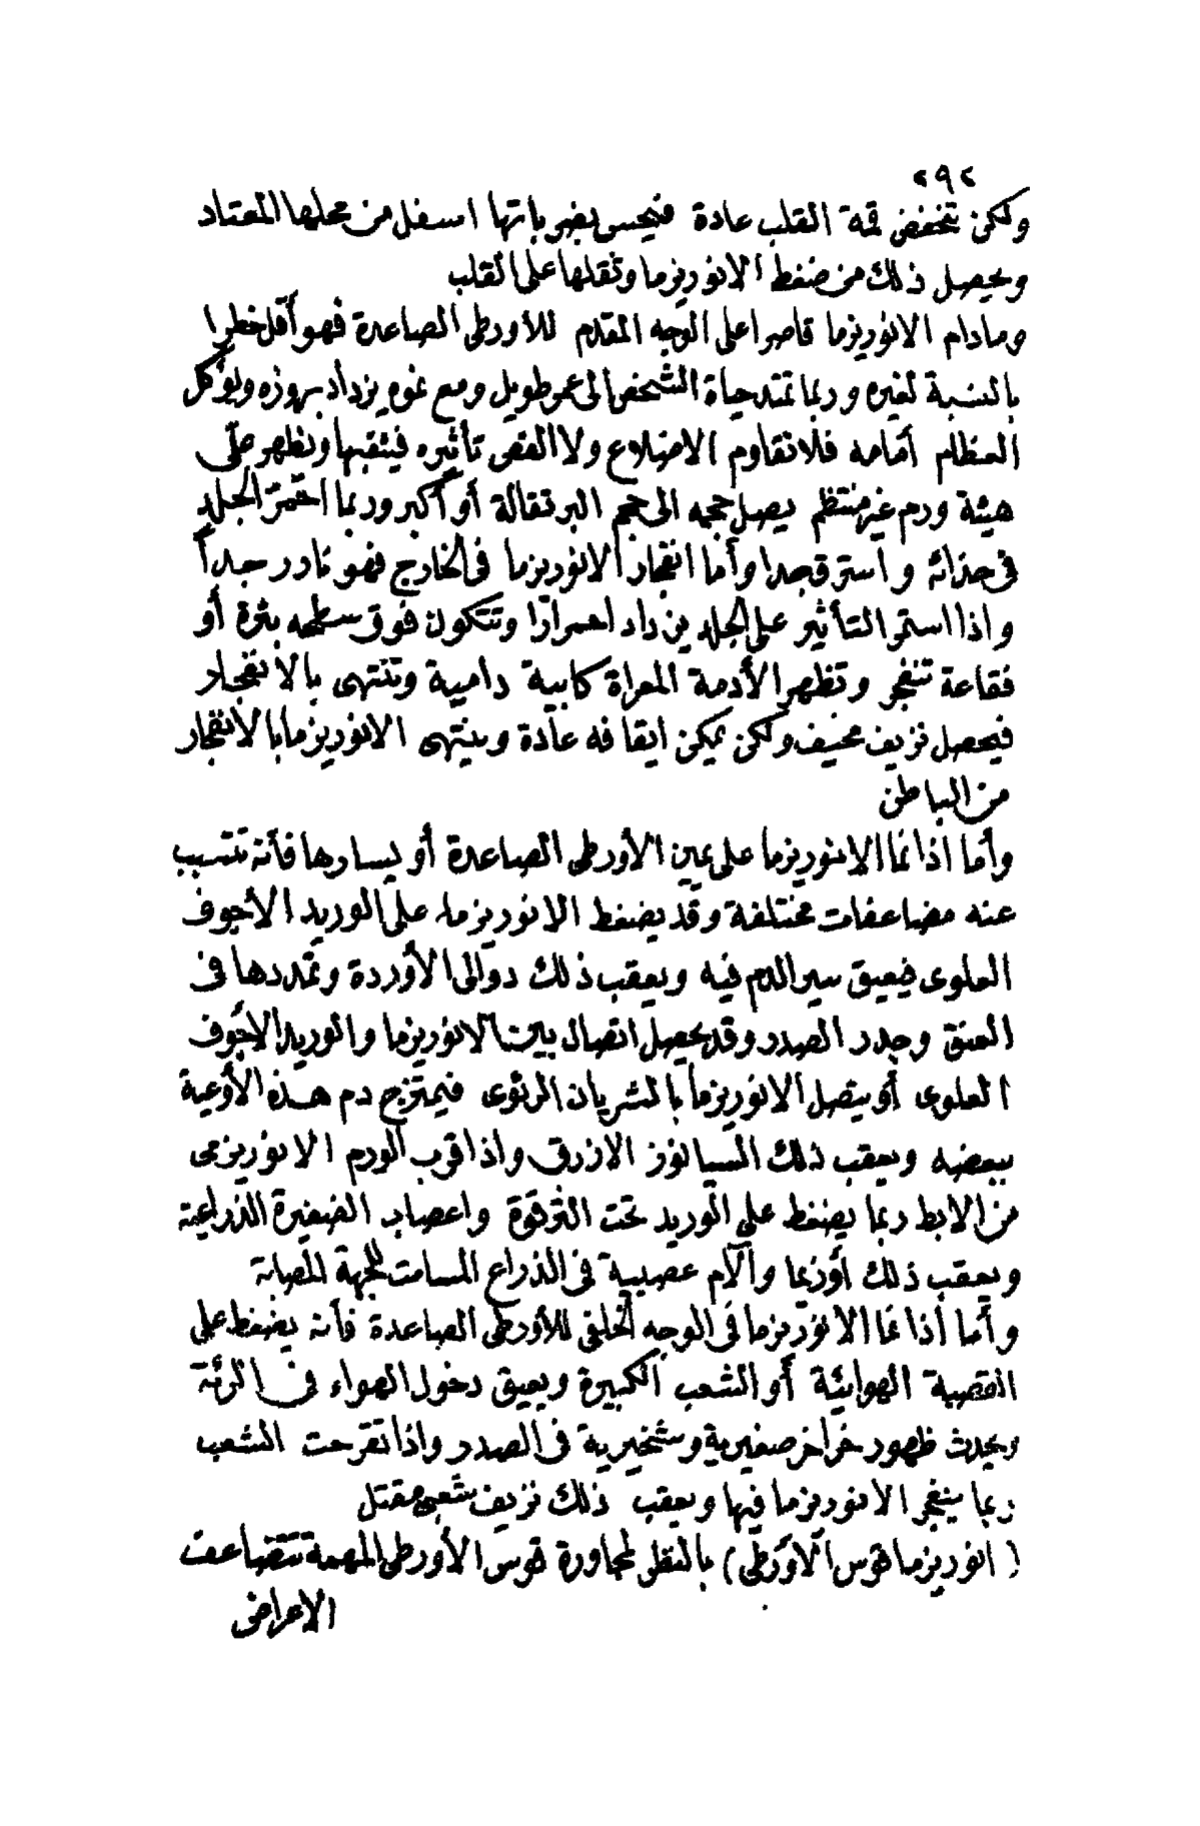 ٢٩٢
ولكن تنخفض قمة القلب عادة فيحس بضرباتها اسفل من محلها المعتاد
ويحصل ذلك من ضغط الانوريزما وثقلها على القلب
ومادام الانوريزما قاصرا على الوجه المقدم للأورطى الصاعدة فهو أقل خطرا
بالنسبة لغيره وربما تمتد حياة الشخص الى عمر طويل ومع نموه يزداد بروزه ويؤكل
العظام أمامه فلا تقاوم الاضلاع ولا القص تأثيره فيثقبها ويظهر على
هيئة ورم غير منتظم يصل حجمه الى حجم البرتقالة أو أكبر وربما احمر الجلد
فى حذائه واسترق جدا وأما انفجار الانوريزما فى الخارج فهو نادر جداً
واذا استمر التأثير على الجلد يزداد احمرارا وتتكون فوق سطحه بثرة أو
فقاعة تنفجر وتظهر الأدمة المعراة كابية دامية وتنتهى بالانفجار
فيحصل نزيف مخيف ولكن يمكن ايقافه عادة وينتهى الانوريزما بالانفجار
من الباطن
وأما اذا نما الانوريزما على يمين الأورطى الصاعدة أو يسارها فأنه تتسبب
عنه مضاعفات مختلفة وقد يضغط الانوريزما على الوريد الأجوف
العلوى فيعيق سير الدم فيه ويعقب ذلك دوالى الأوردة وتمددها فى
العنق وجدر الصدر وقد يحصل اتصال بين الانوريزما والوريد الاجوف
العلوى أو يتصل الانوريزما بالشريان الرئوى فيمتزج دم هذه الأوعية
ببعضه ويعقب ذلك السيانوز الازرق واذا قرب الورم الانوريزمى
من الابط ربما يضغط على الوريد تحت الترقوة واعصاب الضفيرة الذراعية
ويعقب ذلك أوزيما وآلام عصبية فى الذراع المسامت للجهة المصابة
وأما أذا نما الانوريزما فى الوجه الخلفى للأورطى الصاعدة فأنه يضغط على
القصبة الهوائية أو الشعب الكبيرة ويعيق دخول الهواء فى الرئة
ويحدث ظهور خراخر صفيرية وشخيرية فى الصدر واذا تقرحت الشعب
ربما ينفجر الانوريزما فيها ويعقب ذلك نزيف شعبى مقتل
(انوريزما قوس الأورطى) بالنظر لمجاورة قوس الأورطى المهمة تتضاعف
الاعراض